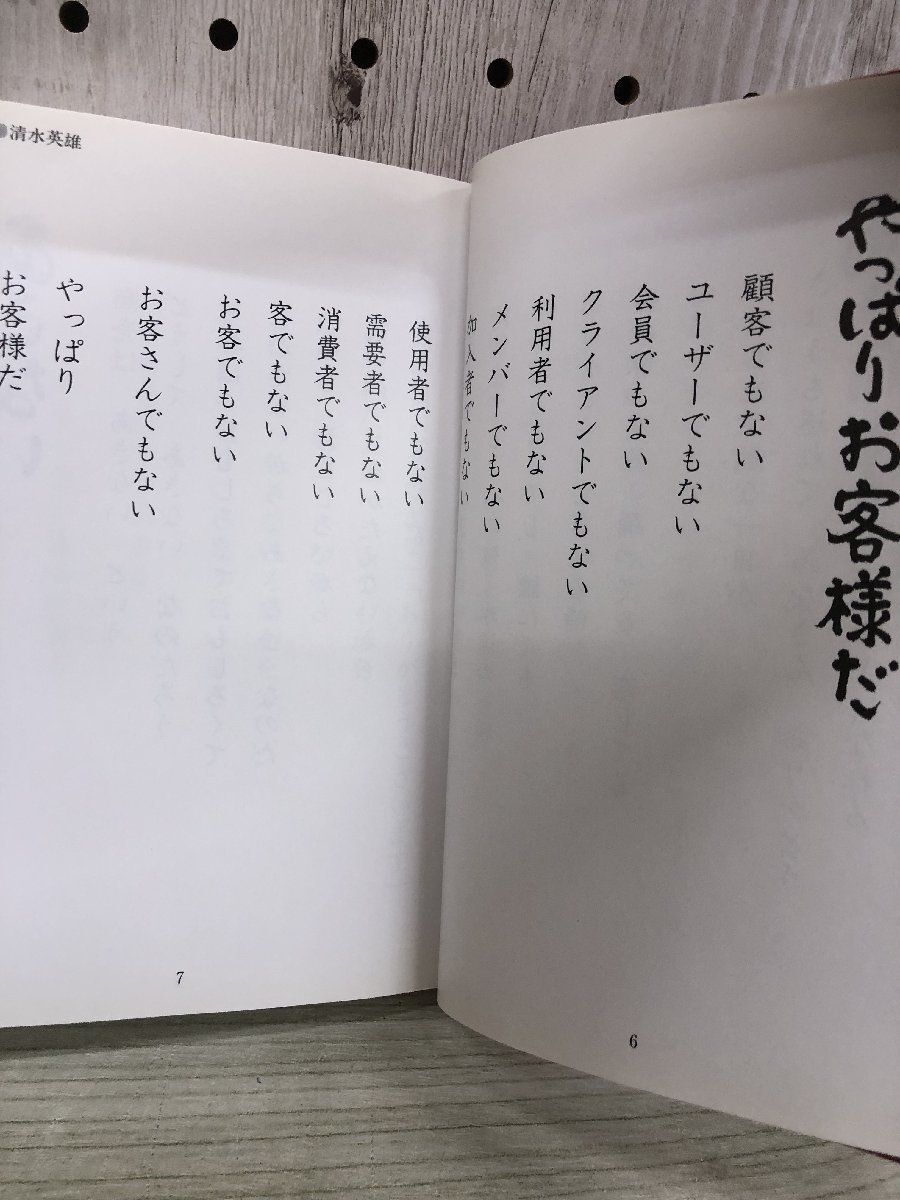 やっぱりお客様だ
顧客でもない
ユーザーでもない
会員でもない
クライアントでもない
利用者でもない
メンバーでもない
加入者でもない
6
清水英雄
使用者でもない
需要者でもない
消費者でもない
客でもない
お客でもない
お客さんでもない
やっぱり
お客様だ
7